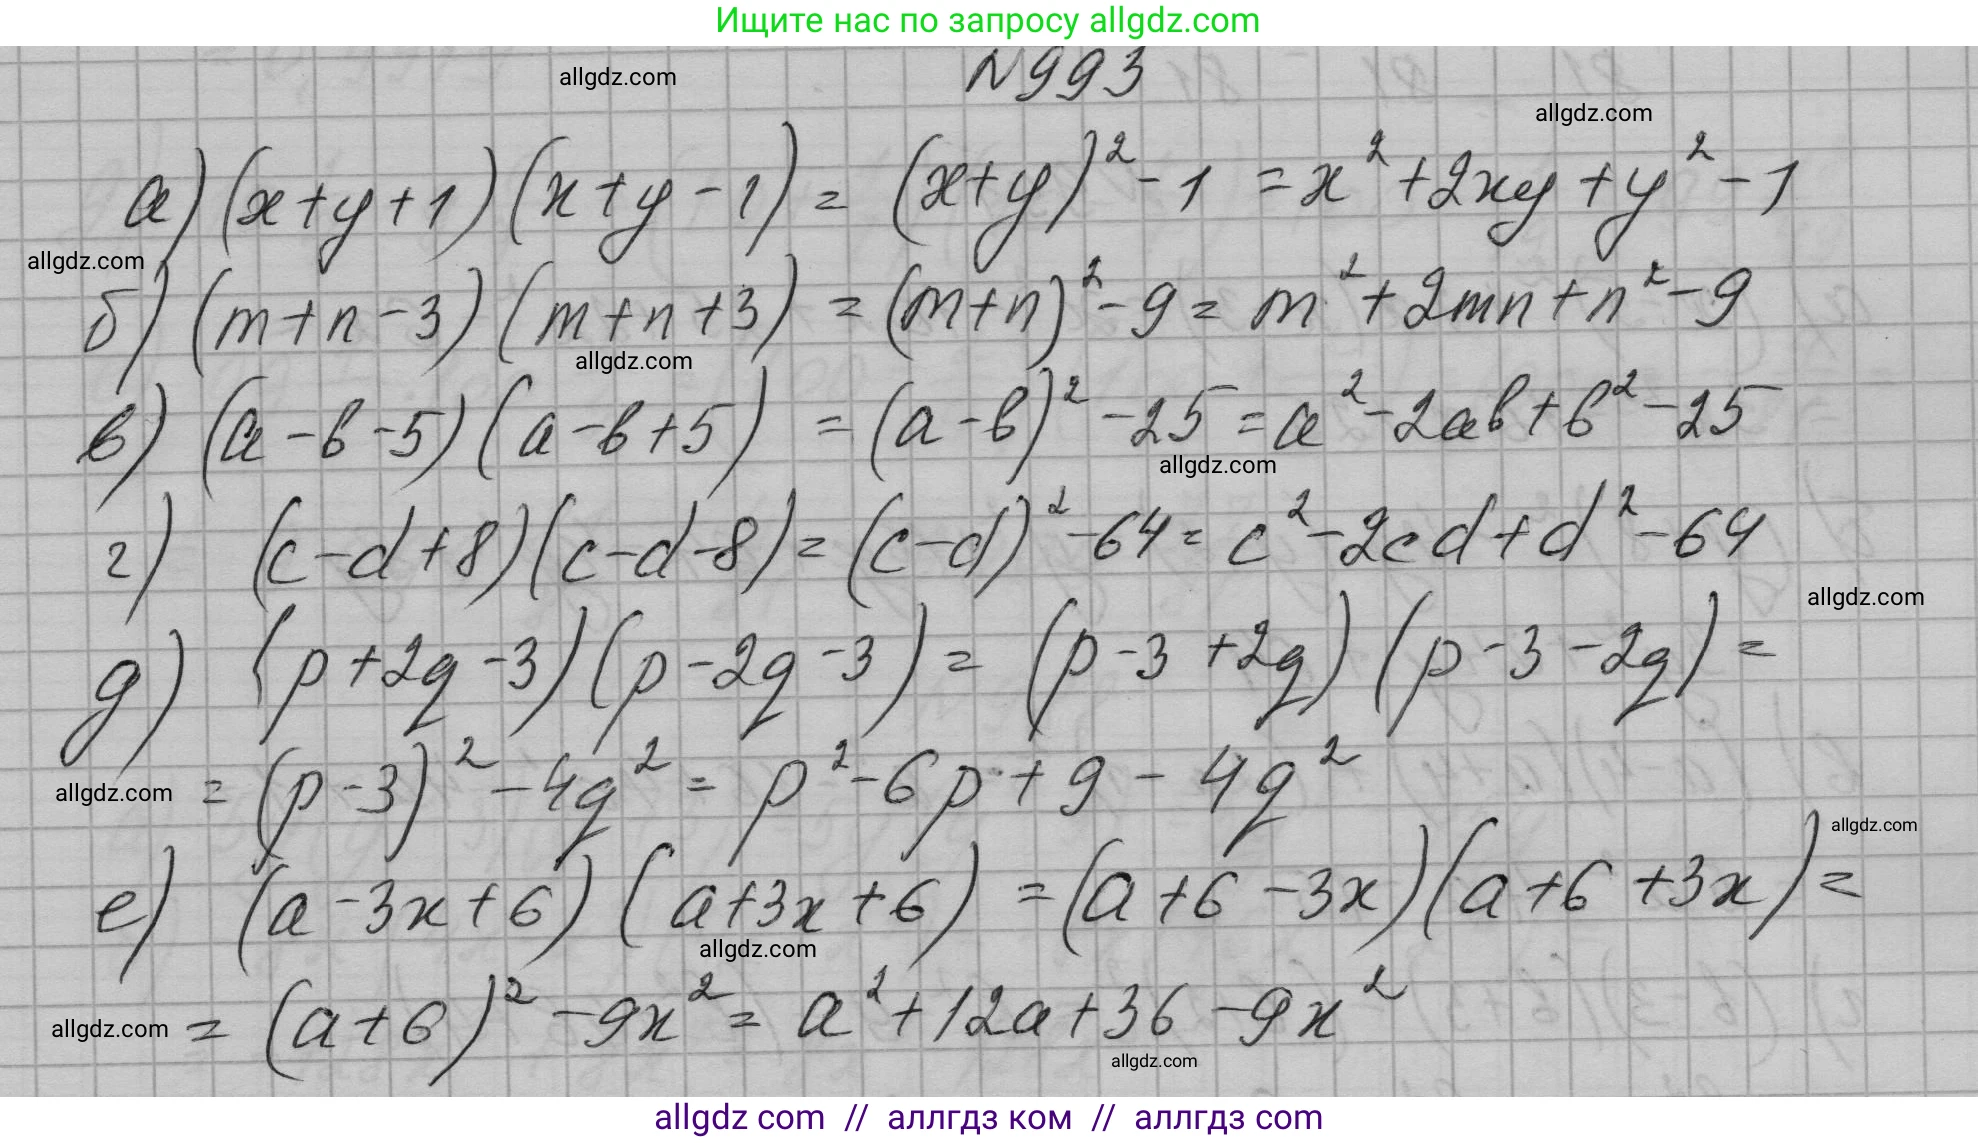 Ищите нас по запросу allgdz.com
№993
allgdz.com
allgdz.com
а) (x+y+1)(x+y-1) = (x+y)²-1 = x²+2xy+y²-1
allgdz.com
б) (m+n-3)(m+n+3) = (m+n)²-9 = m²+2mn+n²-9
allgdz.com
в) (a-b-5)(a-b+5) = (a-b)²-25 = a²-2ab+b²-25
allgdz.com
г) (c-d+8)(c-d-8) = (c-d)²-64 = c²-2cd+d²-64
allgdz.com
д) (p+2q-3)(p-2q-3) = (p-3+2q)(p-3-2q) =
allgdz.com
= (p-3)²-4q² = p²-6p+9-4q²
allgdz.com
е) (a-3x+6)(a+3x+6) = (a+6-3x)(a+6+3x) =
allgdz.com
allgdz.com
= (a+6)²-9x² = a²+12a+36-9x²
allgdz.com
allgdz com // аллгдз ком // аллгдз com